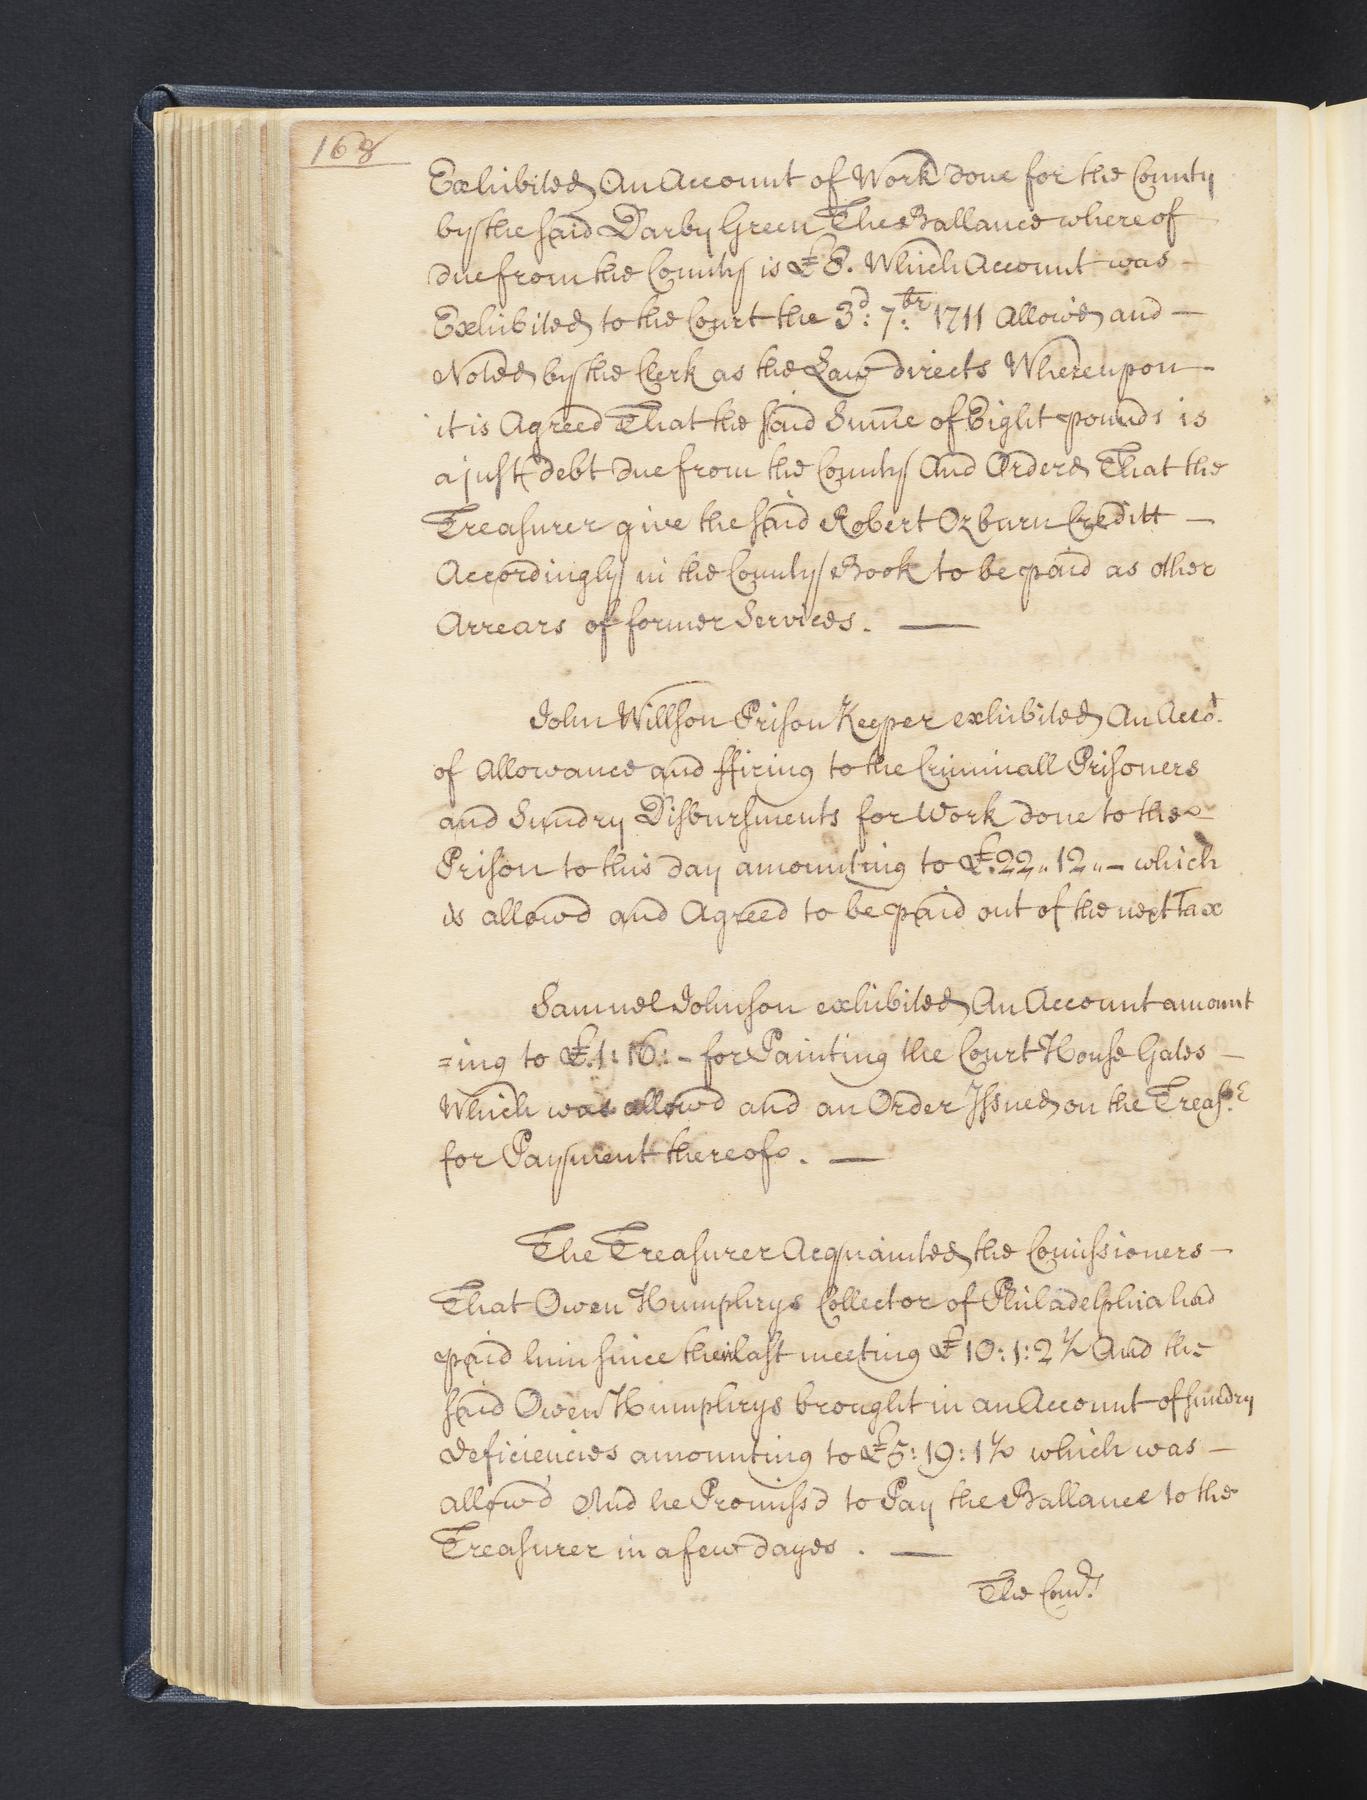 168
Exhibited An Account of Work done for the County
by the said Darby Green The Ballance whereof
due from the County is £8. Which Account was –
Exhibited to the Court the 3d: 7:br 1711 Allow'd and –
Noted by the Clerk as the Law directs Whereupon –
it is Agreed That the said Sume of Eight pounds is
a just debt due from the County And Orderd That the
Treasurer give the said Robert Ozburn Creditt –
Accordingly in the County Book to be paid as other
Arrears of former Services. —
John Willson Prison Keeper exhibited An Acco.t
of Allowance and ffiring to the Criminall Prisoners
and Sundry Disbursments for Work done to the –
Prison to this day amounting to £.22,, 12,, – which
is allowd and Agreed to be paid out of the next Tax
Samuel Johnson exhibited An Account amount
=ing to £.1: 16: – for Painting the Court House Gates –
Which was allowd and an Order Issued on the Treas.r
for Payment thereof. —
The Treasurer Acquainted the Comissioners –
That Owen Humphrys Collector of Philadelphia had
paid him since their last meeting £10: 1: 2 ½ And the
said Owen Humphrys brought in an Account of sundry
deficiencies amounting to £5: 19: 1 ½ which was –
allow'd And he Promiss'd to Pay the Ballance to the
Treasurer in a few dayes. —
The